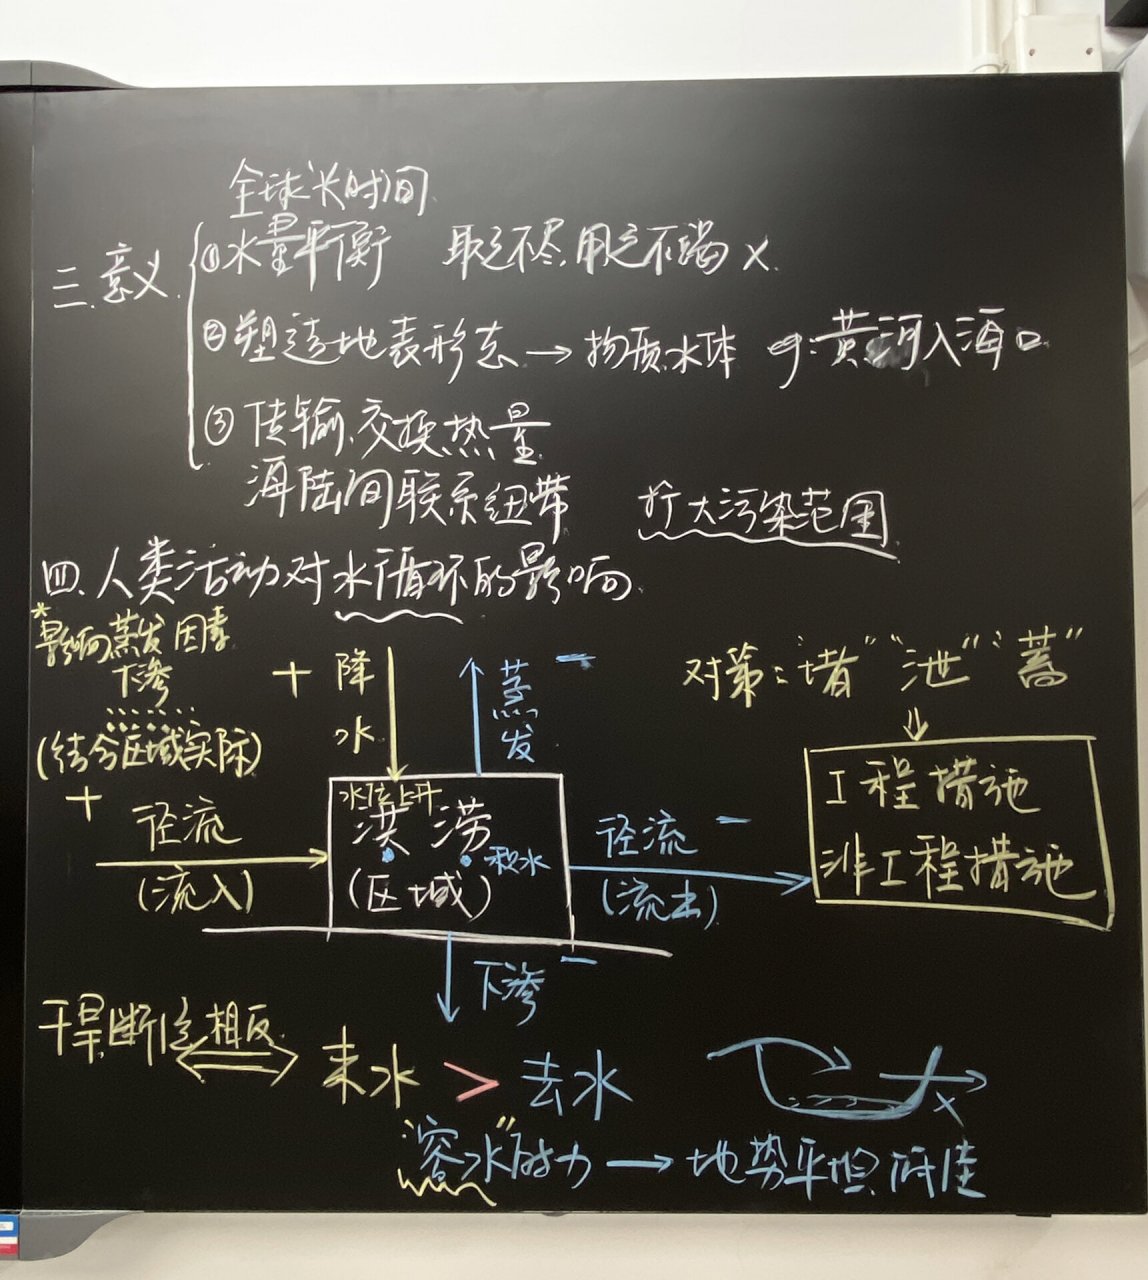 全球长时间
三.意义
①水量平衡 取之不尽,用之不竭 ×
②塑造地表形态 → 物质,水体 eg:黄河入海口
③传输、交换热量
海陆间联系纽带 扩大污染范围
四.人类活动对水循环的影响
*影响蒸发因素
下渗
(结合区域实际)
+ 降水
蒸发 -
对策:"堵""泄""蓄"
工程措施
非工程措施
+
径流
(流入)
水位上升
洪涝
积水
(区域)
径流 -
(流出)
下渗 -
干旱,断流 相反
来水 > 去水
×
"容水"能力 → 地势平坦